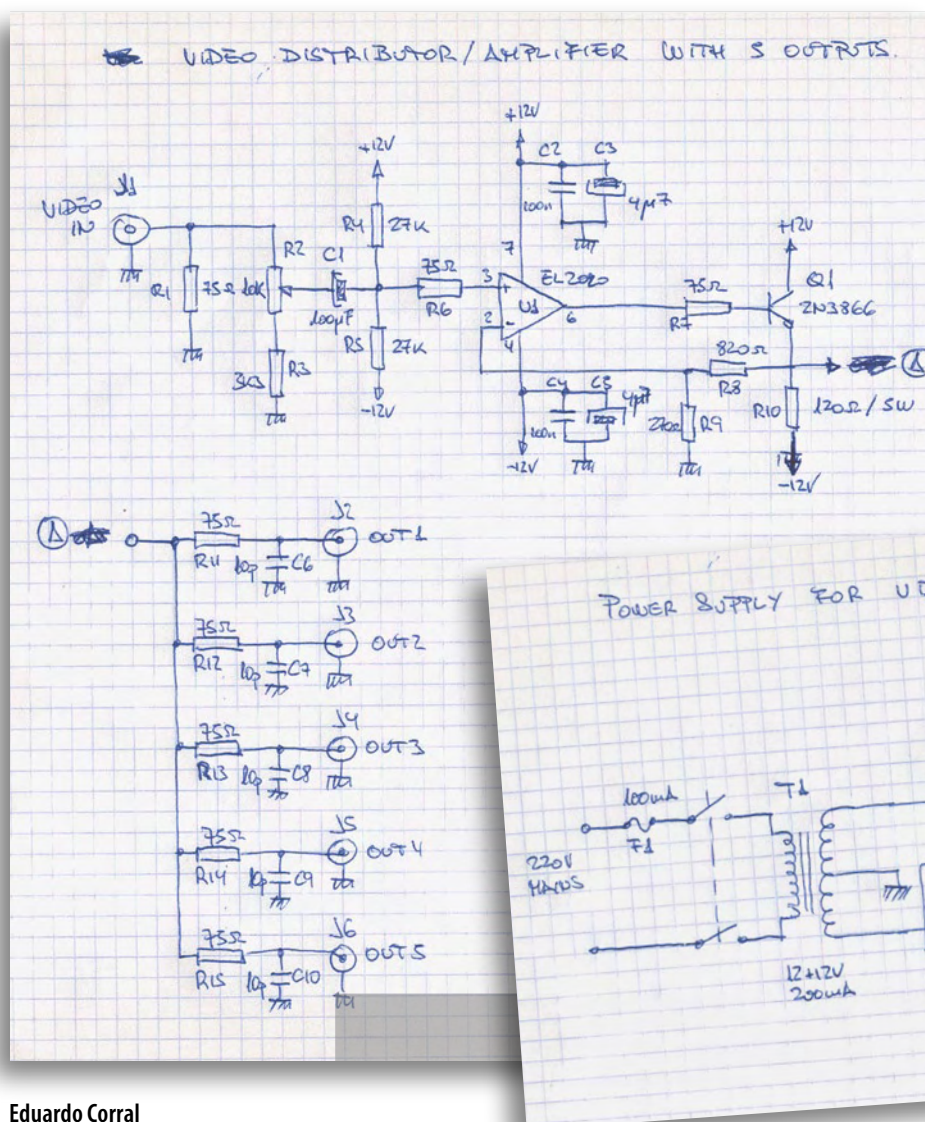 VIDEO DISTRIBUTOR/AMPLIFIER WITH 5 OUTPUTS.
+12V
C2 C3
100n 4µ7
+12V
J1
VIDEO IN
R1 75Ω
R2 10K
R3 3K3
C1 100µF
R4 27K
R5 27K
-12V
75Ω R6
7
3 +
2 -
4
6
EL2020
U1
75Ω R7
+12V
Q1
2N3866
820Ω R8
A
C4 C5
100n 4µ7
-12V
270Ω R9
R10 120Ω/5W
-12V
A
75Ω R11 10p C6 J2 OUT1
75Ω R12 10p C7 J3 OUT2
75Ω R13 10p C8 J4 OUT3
75Ω R14 10p C9 J5 OUT4
75Ω R15 10p C10 J6 OUT5
POWER SUPPLY FOR VID
100mA
F1
T1
220V
MAINS
12+12V
200mA
Eduardo Corral